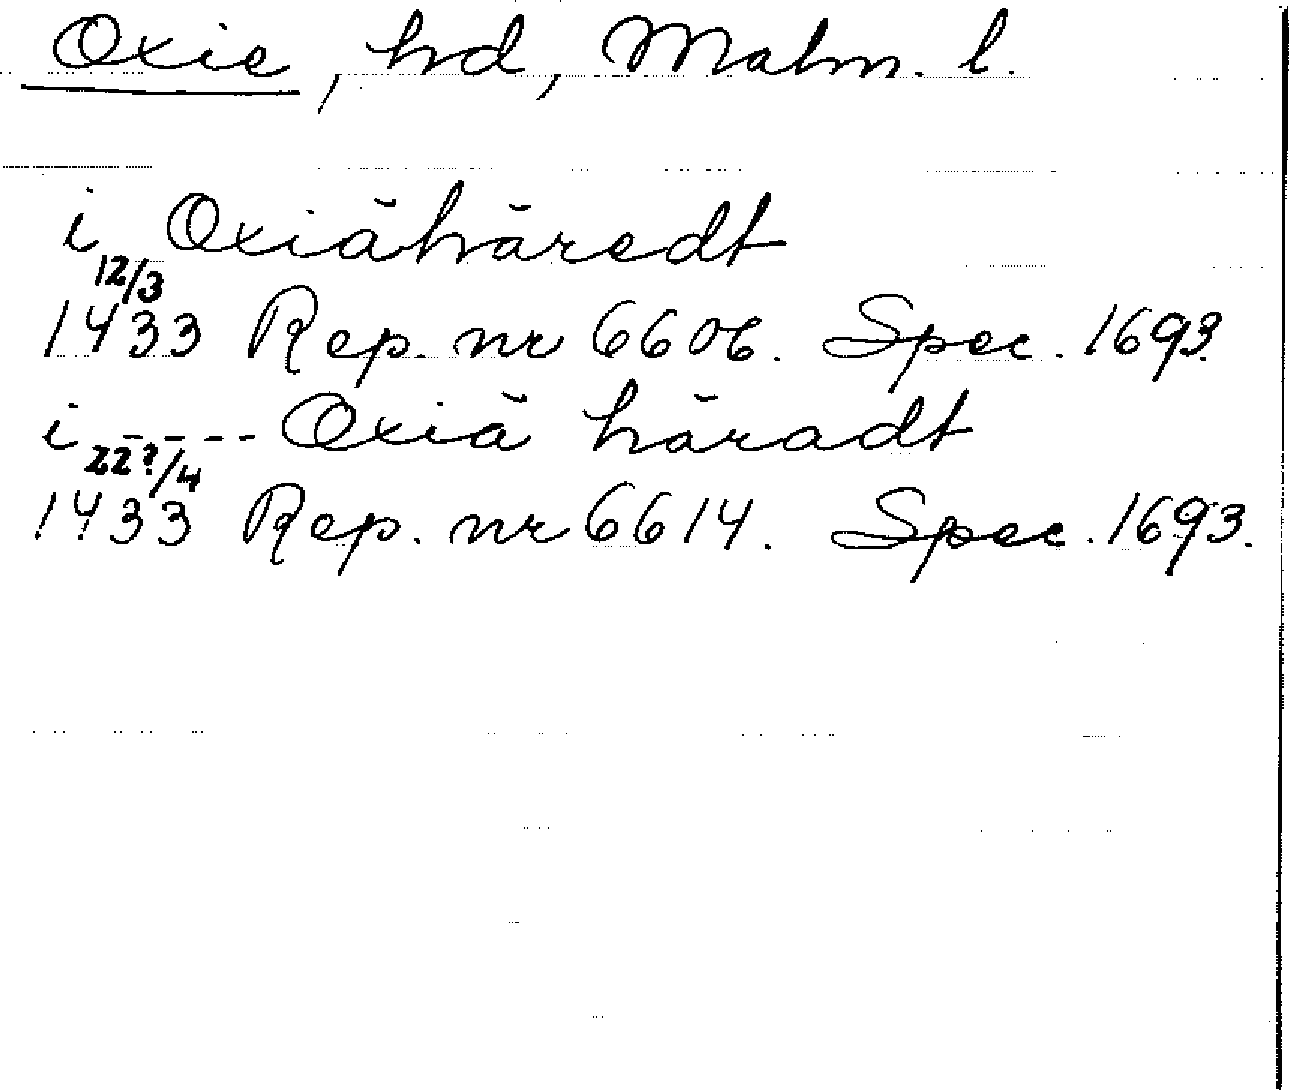 Oxie, hd, Malm. l.
i Oxiähäredt
12/3
1433 Rep. nr 6606. Spec. 1693.
i ----- Oxiä häradt
22?/4
1433 Rep. nr 6614. Spec. 1693.